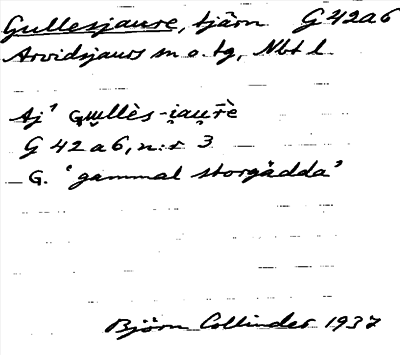 Gullesjaure, tjärn G 42 a 6
Arvidsjaurs sn o. tg, Nbt l.
Aj' Gu̯llès-i̯au̯rè
G 42 a 6, n:r 3
G. 'gammal storgädda'
Björn Collinder 1937